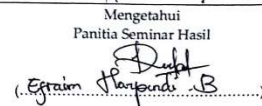 Mengetahui
Panitia Seminar Hasil
(Efraim Harpindi .B)